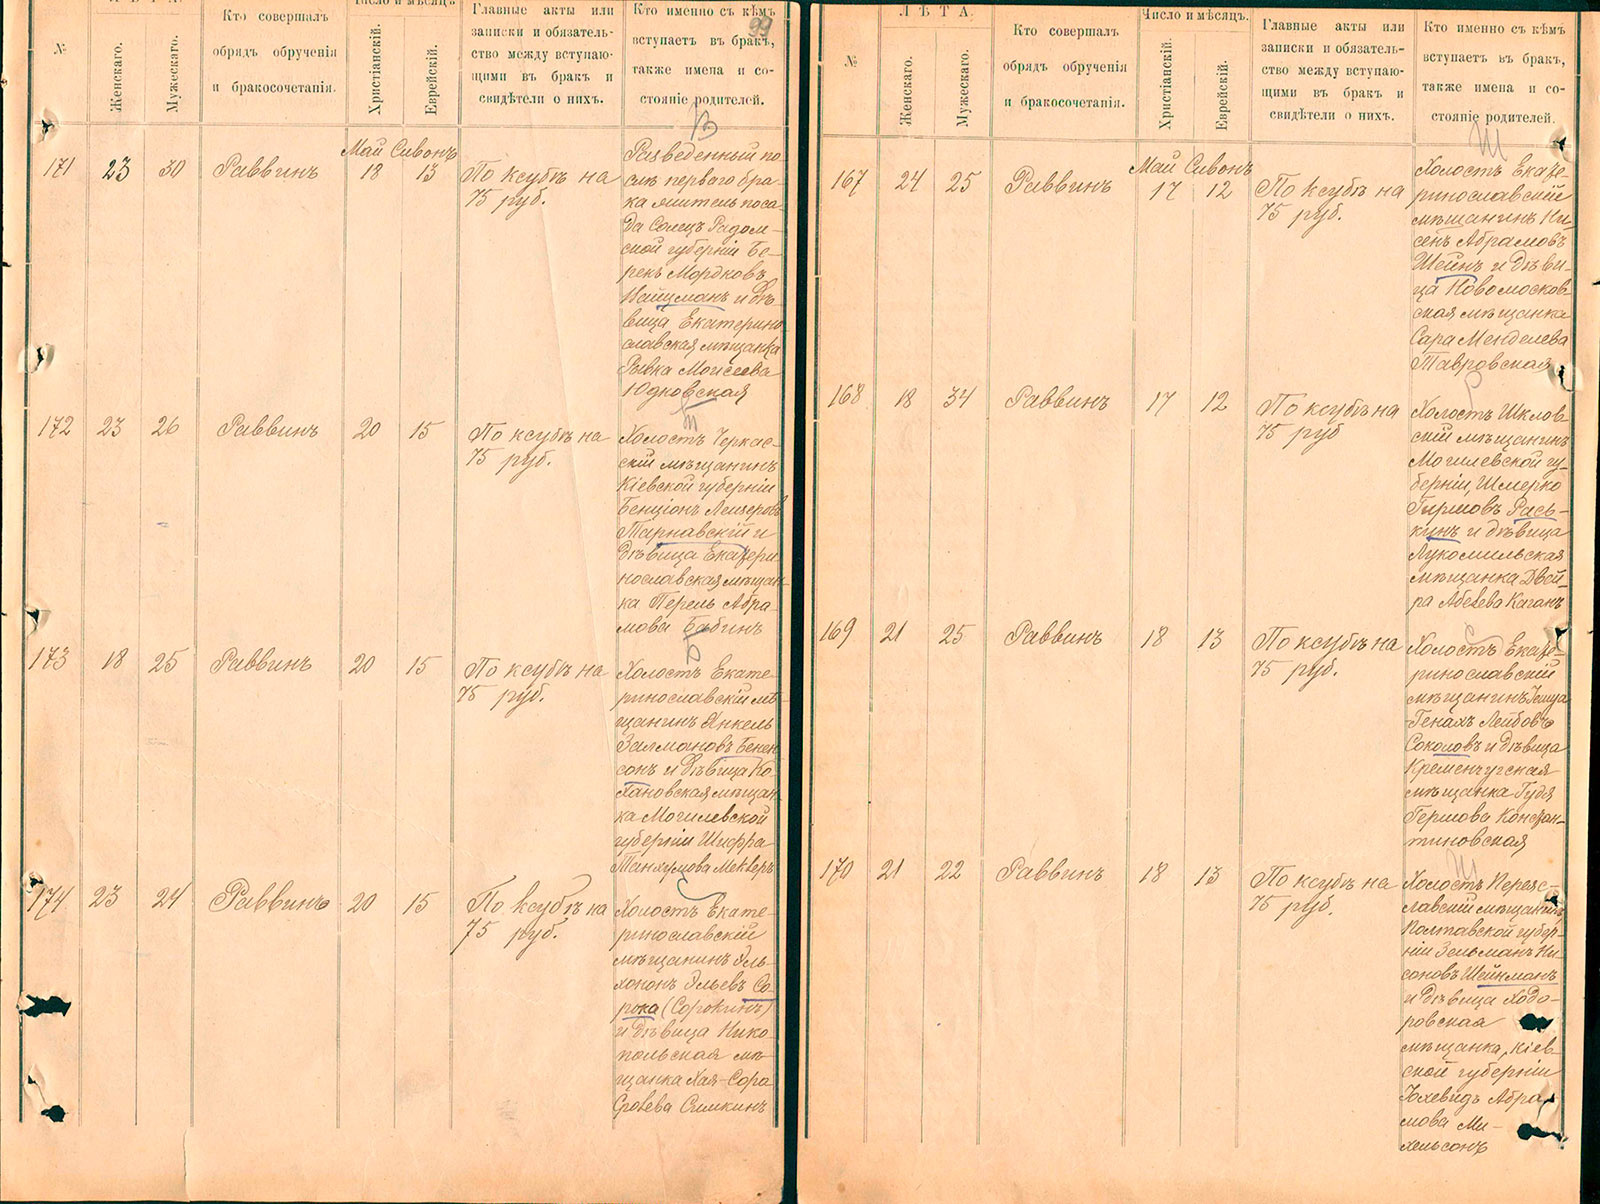 ЛѢТА.
№
Женскаго.
Мужескаго.
Кто совершалъ
обрядъ обрученія
и бракосочетанія.
Число и мѣсяцъ
Христіанскій.
Еврейскій.
Главные акты или
записки и обязатель-
ство между вступаю-
щими въ бракъ и
свидѣтели о нихъ.
Кто именно съ кѣмъ
вступаетъ въ бракъ,
также имена и со-
стояніе родителей.
99
171 23 30 Раввинъ
Май Сивонъ
18 13
По ксубѣ на
75 руб.
Разведенный по-
слѣ перваго бра-
ка житель поса-
да Солецъ Радом-
ской губерніи Бе-
рекъ Мордковъ
Найцманъ и дѣ-
вица Екатерино-
славская мѣщанка
Рывка Моисеева
Юдковская
172 23 26 Раввинъ 20 15
По ксубѣ на
75 руб.
Холостъ Черкас-
скій мѣщанинъ
Кіевской губерніи
Бенціонъ Лейзеровъ
Тарнавскій и
дѣвица Екатери-
нославская мѣщан-
ка Перель Абра-
мова Бабинъ
173 18 25 Раввинъ 20 15
По ксубѣ на
75 руб.
Холостъ Екате-
ринославскій мѣ-
щанинъ Янкель
Залмановъ Бенен-
сонъ и дѣвица Ко-
хановская мѣщан-
ка Могилевской
губерніи Шифра
Танхумова Меклеръ
174 23 24 Раввинъ 20 15
По ксубѣ на
75 руб.
Холостъ Екате-
ринославскій
мѣщанинъ Эль-
хононъ Эльевъ Со-
рока (Сорокинъ)
и дѣвица Нико-
польская мѣ-
щанка Хая-Сора
Сролева Симкинъ
ЛѢТА.
№
Женскаго.
Мужескаго.
Кто совершалъ
обрядъ обрученія
и бракосочетанія.
Число и мѣсяцъ.
Христіанскій.
Еврейскій.
Главные акты или
записки и обязатель-
ство между вступаю-
щими въ бракъ и
свидѣтели о нихъ.
Кто именно съ кѣмъ
вступаетъ въ бракъ,
также имена и со-
стояніе родителей.
Ш
167 24 25 Раввинъ
Май Сивонъ
17 12
По ксубѣ на
75 руб.
Холостъ Екате-
ринославскій
мѣщанинъ Ни-
сенъ Абрамовъ
Шейнъ и дѣви-
ца Новомосков-
ская мѣщанка
Сара Менделева
Тавровская
Р
168 18 34 Раввинъ 17 12
По ксубѣ на
75 руб
Холостъ Шклов-
скій мѣщанинъ
Могилевской гу-
берніи, Шмерко
Гиршовъ Рась-
кинъ и дѣвица
Лукомильская
мѣщанка Двей-
ра Абелева Каганъ
С
169 21 25 Раввинъ 18 13
По ксубѣ на
75 руб.
Холостъ Екате-
ринославскій
мѣщанинъ
Генахъ Лейбовъ
Соколовъ и дѣвица
Кременчугская
мѣщанка Гудя
Гершова Констан-
тиновская
Ш
170 21 22 Раввинъ 18 13
По ксубѣ на
75 руб.
Холостъ Переяс-
лавскій мѣщанинъ
Полтавской губер-
ніи Зельманъ Ни-
соновъ Шейнманъ
и дѣвица Ходо-
ровская
мѣщанка, Кіев-
ской губерніи
Юхевидъ Абра-
мова Ми-
хельсонъ